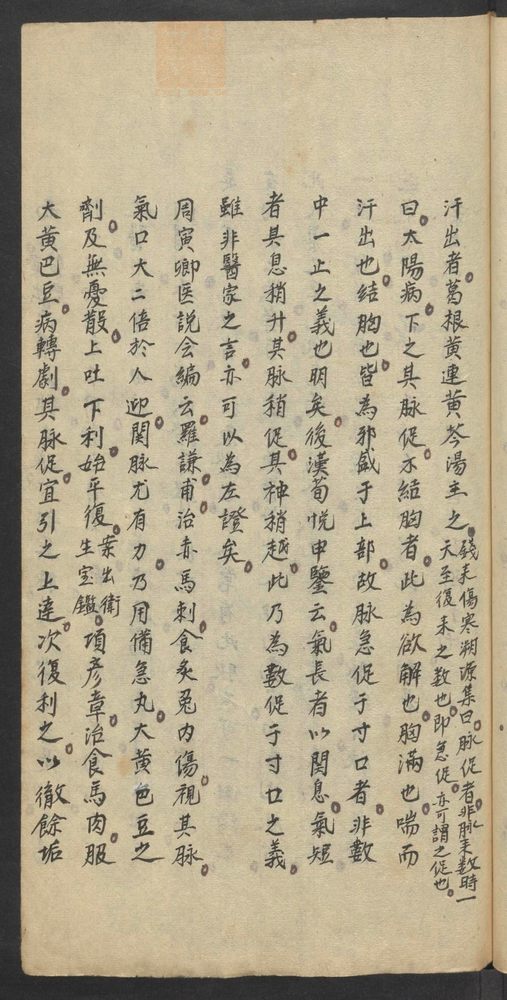 汗出者葛根黄連黄芩湯主之
錢耒傷寒溯源集曰脉促者非脉耒數時一
天至復耒之數也即急促亦可謂之促也
曰太陽病下之其脉促不結胸者此為欲解也胸滿也喘而
汗出也結胸也皆為邪盛于上部故脉急促于寸口者非數
中一止之義也明矣後漢荀悦申鑒云氣長者以関息氣短
者其息稍升其脉稍促其神稍越此乃為數促于寸口之義
雖非醫家之言亦可以為左證矣
周寅卿医説会編云羅謙甫治赤馬刺食炙兔内傷視其脉
氣口大二倍於人迎関脉尤有力乃用備急丸大黄巴豆之
劑及無憂散上吐下利始平復
案出衛
生宝鑑
項彦章治食馬肉服
大黄巴豆病轉劇其脉促宜引之上達次復利之以徹餘垢